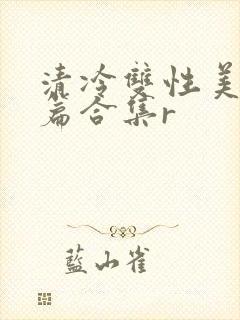 清冷雙性美
篇合集r
藍山雀